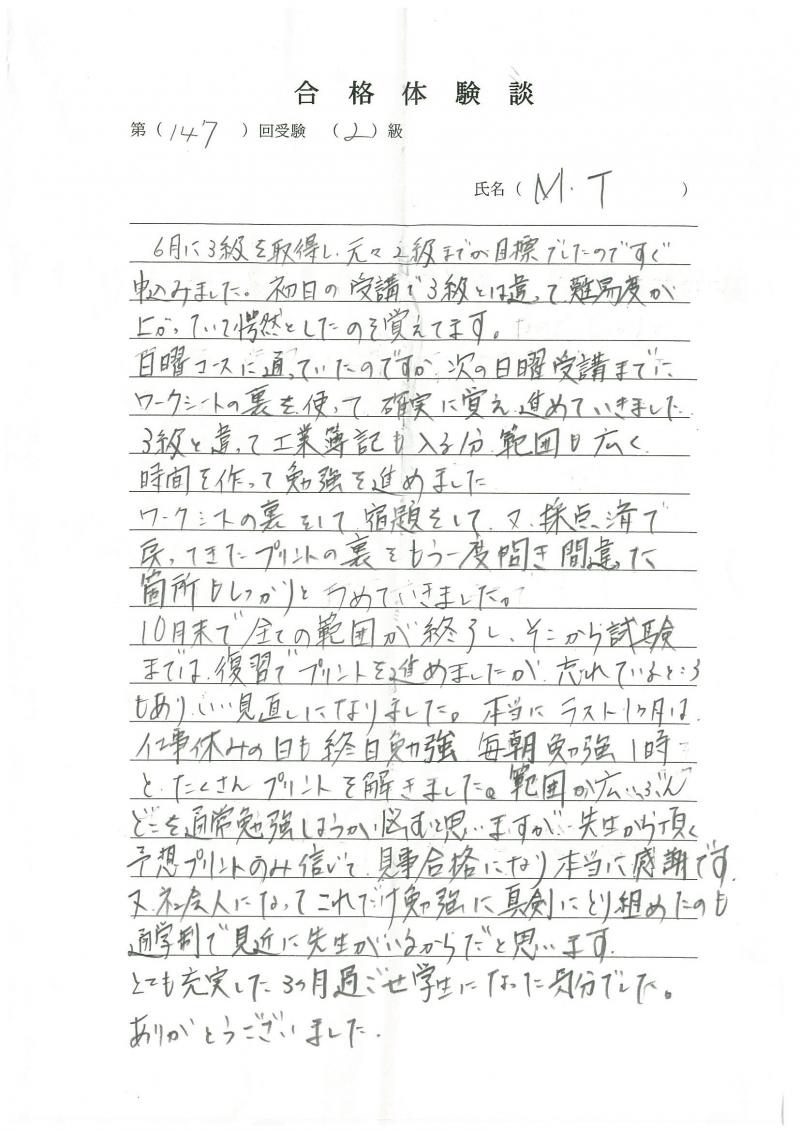 合格体験談
第（147）回受験 （2）級
氏名（M.T）
6月に3級を取得し、元々2級までが目標でしたのですぐ
申込みました。初日の受講で3級とは違って難易度が
上がっていて愕然としたのを覚えてます。
日曜コースに通っていたのですが、次の日曜受講までに
ワークシートの裏を使って、確実に覚え進めていきました
3級と違って工業簿記も入る分、範囲も広く
時間を作って勉強を進めました
ワークシートの裏をして、宿題をして、又、採点済で
戻ってきたプリントの裏をもう一度解き間違った
箇所もしっかりとうめていきました。
10月末で全ての範囲が終了し、そこから試験
までは、復習でプリントを進めましたが、忘れているところ
もあり、いい見直しになりました。本当にラスト1ヶ月は、
仕事休みの日も終日勉強 毎朝勉強1時
と、たくさんプリントを解きました。範囲が広いぶん
どこを通常勉強しようか悩むと思いますが、先生から頂く
予想プリントのみ信じて、見事合格になり本当に感謝です。
又、社会人になってこれだけ勉強に真剣にとり組めたのも
通学制で見近に先生がいるからだと思います。
とても充実した3ヶ月過ごせ学生になった気分でした。
ありがとうございました。